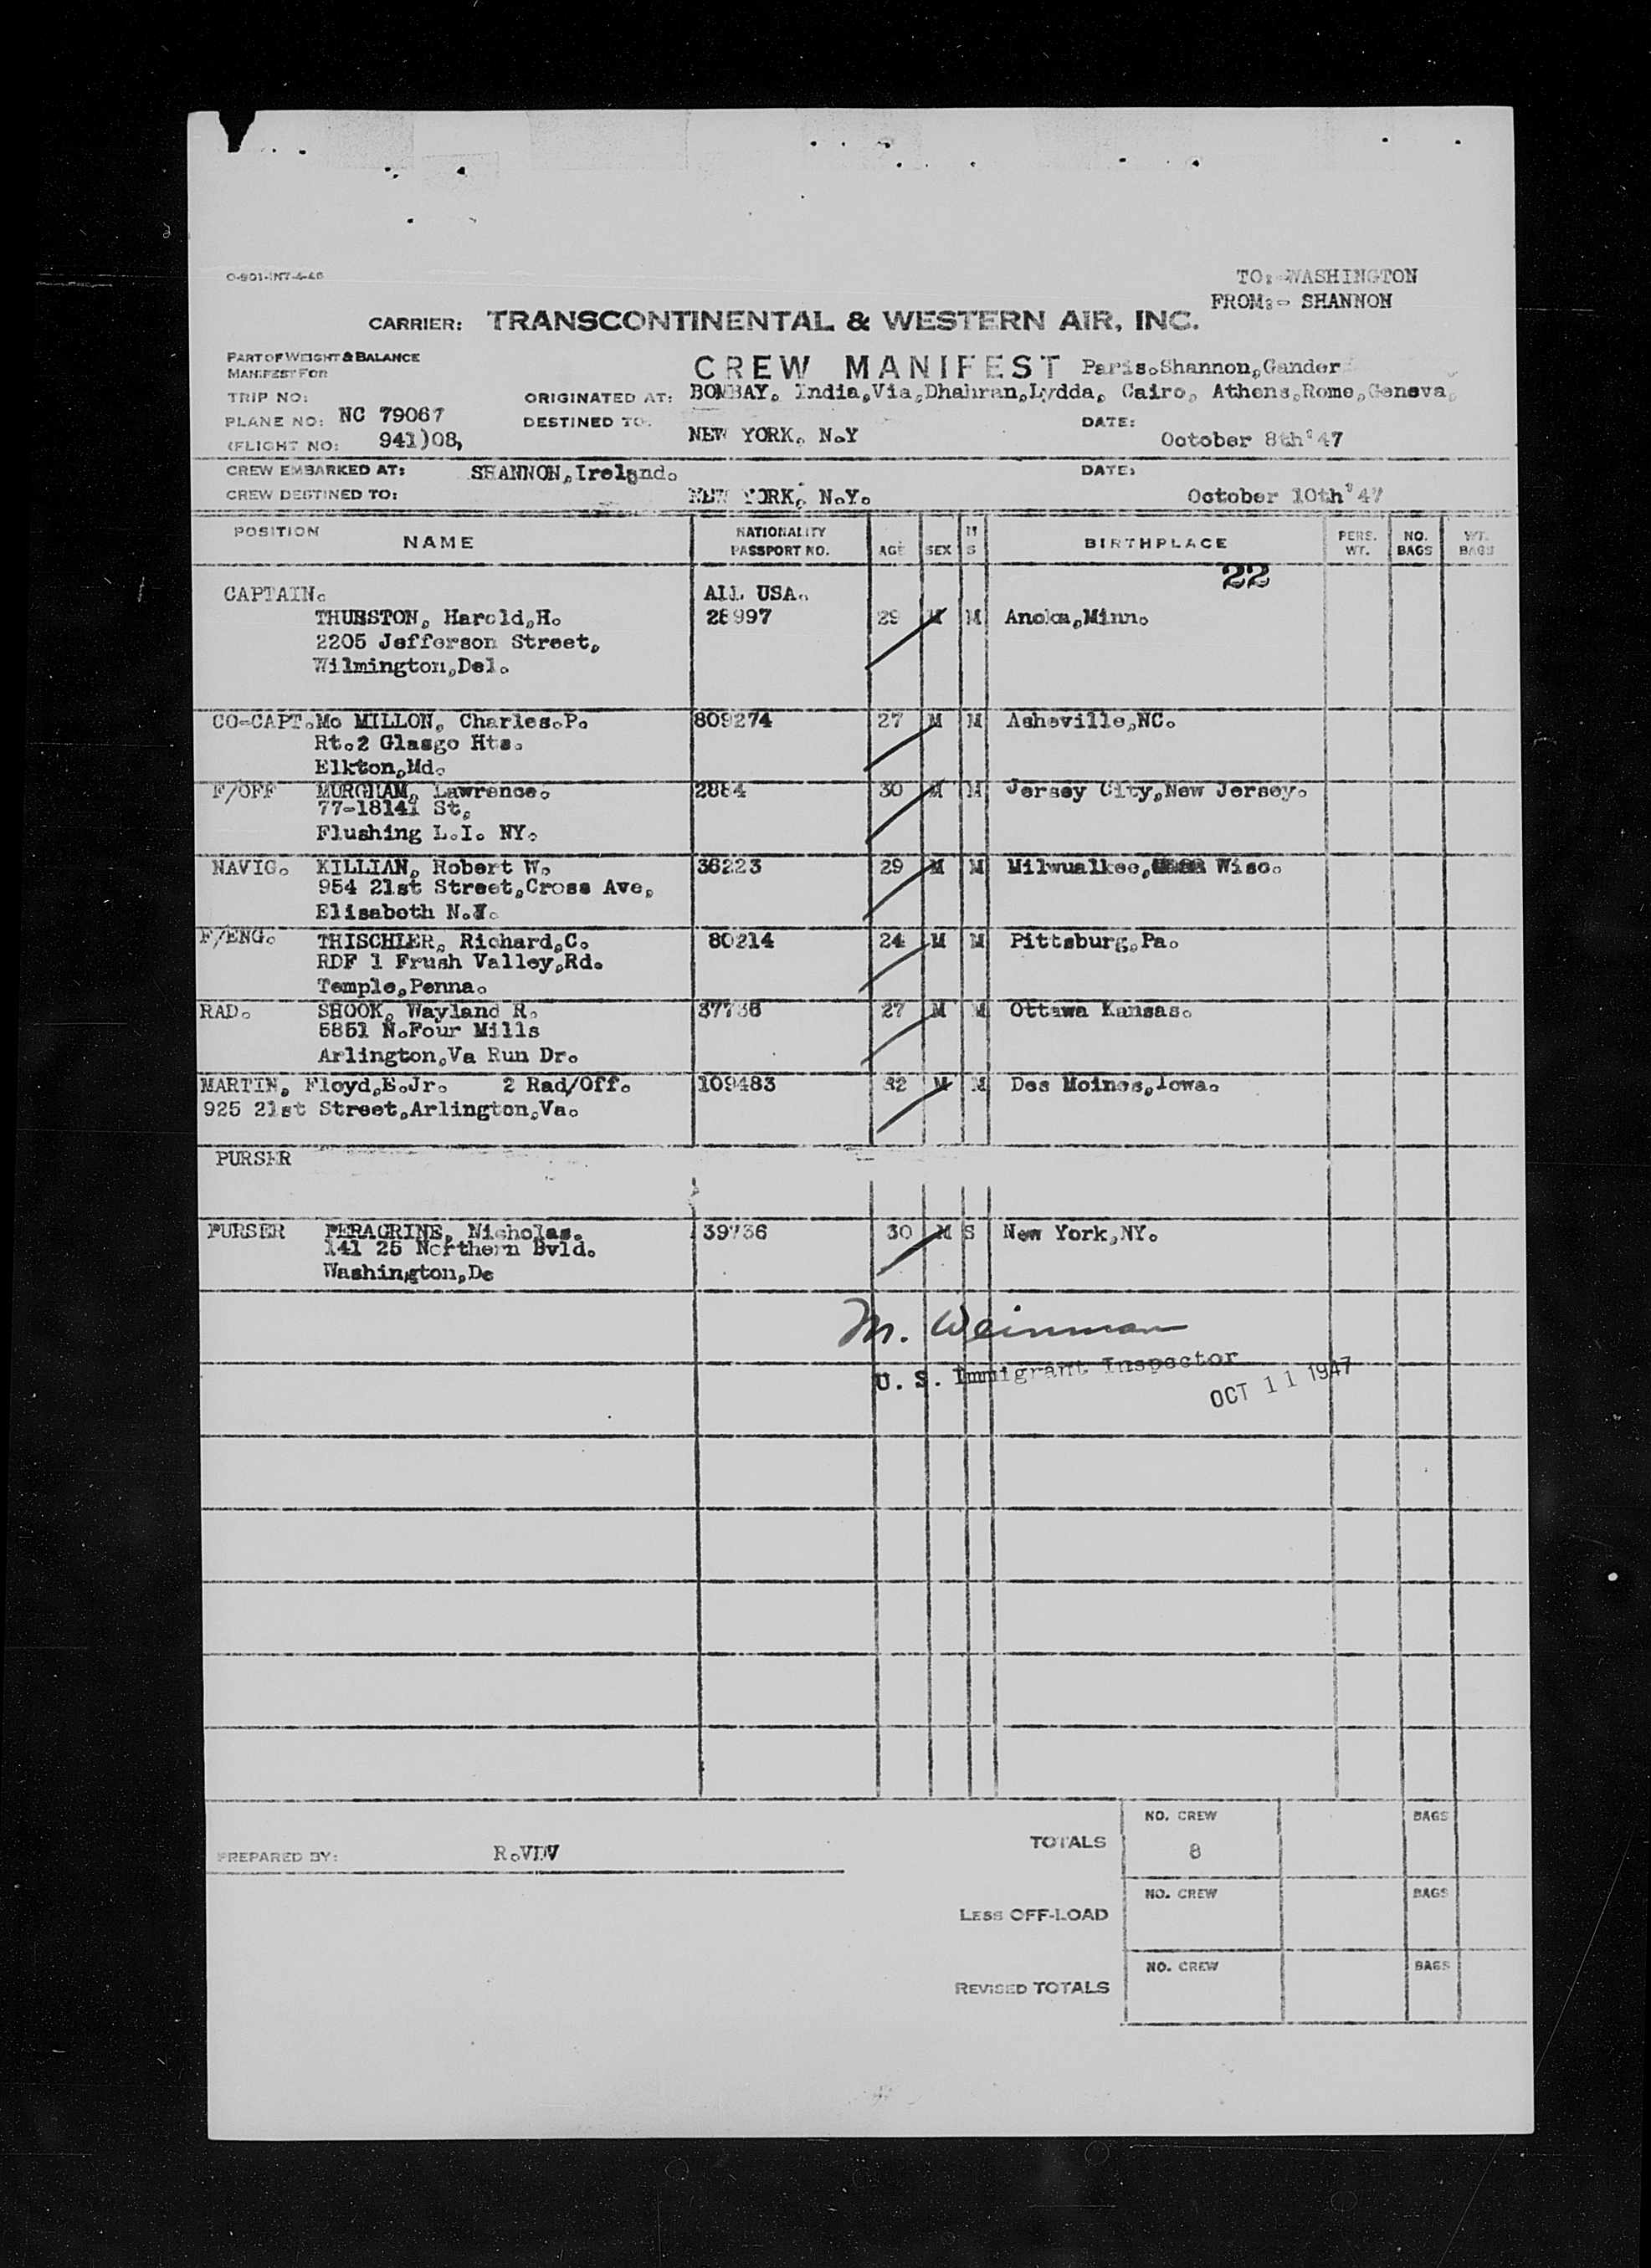 O-901-INT-4-46
TO:-WASHINGTON
FROM:- SHANNON
CARRIER: TRANSCONTINENTAL & WESTERN AIR, INC.
PART OF WEIGHT & BALANCE
MANIFEST FOR
CREW MANIFEST Paris.Shannon,Gander
TRIP NO:
ORIGINATED AT: BOMBAY, India,Via,Dhahran,Lydda, Cairo, Athens,Rome,Geneva,
PLANE NO: NC 79067
DESTINED TO: NEW YORK, N.Y
DATE: October 8th'47
(FLIGHT NO: 941)08,
CREW EMBARKED AT: SHANNON,Ireland.
DATE: October 10th'47
CREW DESTINED TO: NEW YORK, N.Y.
POSITION NAME NATIONALITY PASSPORT NO. AGE SEX M S BIRTHPLACE PERS. WT. NO. BAGS WT. BAGS
22
CAPTAIN. ALL USA.
THURSTON, Harold,H. 28997 29 M M Anoka,Minn.
2205 Jefferson Street,
Wilmington,Del.
CO-CAPT. Mc MILLON, Charles.P. 809274 27 M M Asheville,NC.
Rt.2 Glasgo Hts.
Elkton,Md.
F/OFF MURGHAM, Lawrence. 2884 30 M M Jersey City,New Jersey.
77-18141 St,
Flushing L.I. NY.
NAVIG. KILLIAN, Robert W. 36223 29 M M Milwualkee, Wisc.
954 21st Street,Cross Ave,
Elisabeth N.
F/ENG. THISCHLER, Richard,C. 80214 24 M M Pittsburg,Pa.
RDF 1 Frush Valley,Rd.
Temple,Penna.
RAD. SHOOK, Wayland R. 37736 27 M M Ottawa Kansas.
5851 N.Four Mills
Arlington,Va Run Dr.
MARTIN, Floyd,E.Jr. 2 Rad/Off. 109483 32 M M Des Moines,Iowa.
925 21st Street,Arlington,Va.
PURSER
PURSER PERAGRINE, Nicholas. 39736 30 M S New York,NY.
141 25 Northern Bvld.
Washington,Dc
M. Weinman
U. S. Immigrant Inspector
OCT 11 1947
PREPARED BY: R.VDV
TOTALS NO. CREW 8 BAGS
LESS OFF-LOAD NO. CREW BAGS
REVISED TOTALS NO. CREW BAGS